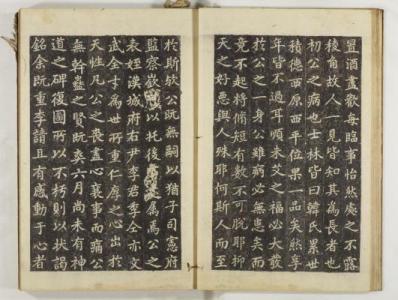 置酒盡歡每臨事怡然處之不露
稜角故人一見皆知其爲長者也
初公之病也士林皆曰韓氏累世
積德西原西平位杲一品矣然享
年皆不過耳順朱文之福必大發
於公之一身公雖病必無患矣而
竟不起將脩短有數不可脫耶抑
天之好惡與人殊耶何斯人而至
於斯歟公旣無嗣以猶子司憲府
監察以托後屬焉公之
表姪漢城府右尹李君季仝亦文
武全才爲世所重仁厚之心出於
天性凡公之喪盡心襄事而痛公
無幹蠱之賢旣葬六月尚未有神
道之碑復圖所以不朽則以狀謁
銘余旣重李請且有感動于心者